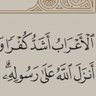 ٱلْأَعْرَابُ أَشَدُّ كُفْرًا وَ
أَنزَلَ ٱللَّهُ عَلَىٰ رَسُولِهِۦ ۗ